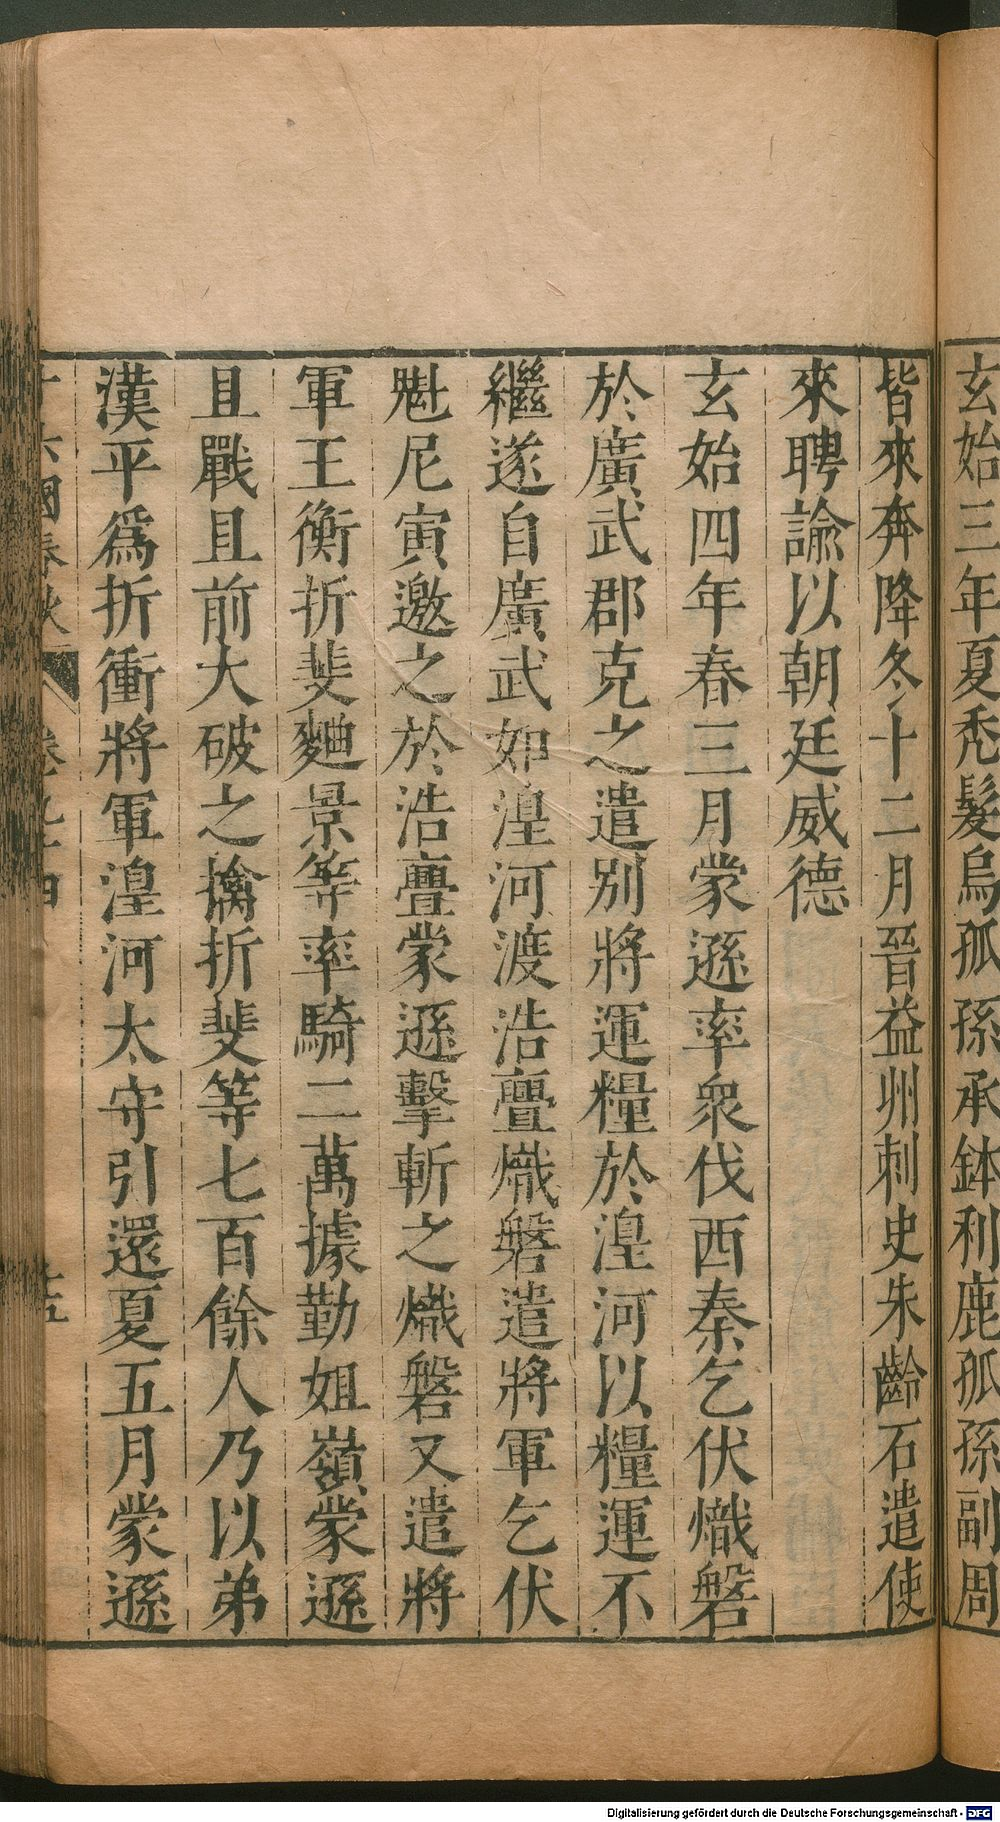 玄始三年夏禿髮烏孤孫承鉢利鹿孤孫副周
皆來奔降冬十二月晉益州刺史朱齡石遣使
來聘諭以朝廷威德
玄始四年春三月蒙遜率衆伐西秦乞伏熾磐
於廣武郡克之遣別將運糧於湟河以糧運不
繼遂自廣武如湟河渡浩亹熾磐遣將軍乞伏
魋尼寅邀之於浩亹蒙遜擊斬之熾磐又遣將
軍王衡折斐麴景等率騎二萬據勤姐嶺蒙遜
且戰且前大破之擒折斐等七百餘人乃以弟
漢平爲折衝將軍湟河太守引還夏五月蒙遜
十六國春秋 卷九十四 十五
Digitalisierung gefördert durch die Deutsche Forschungsgemeinschaft - DFG